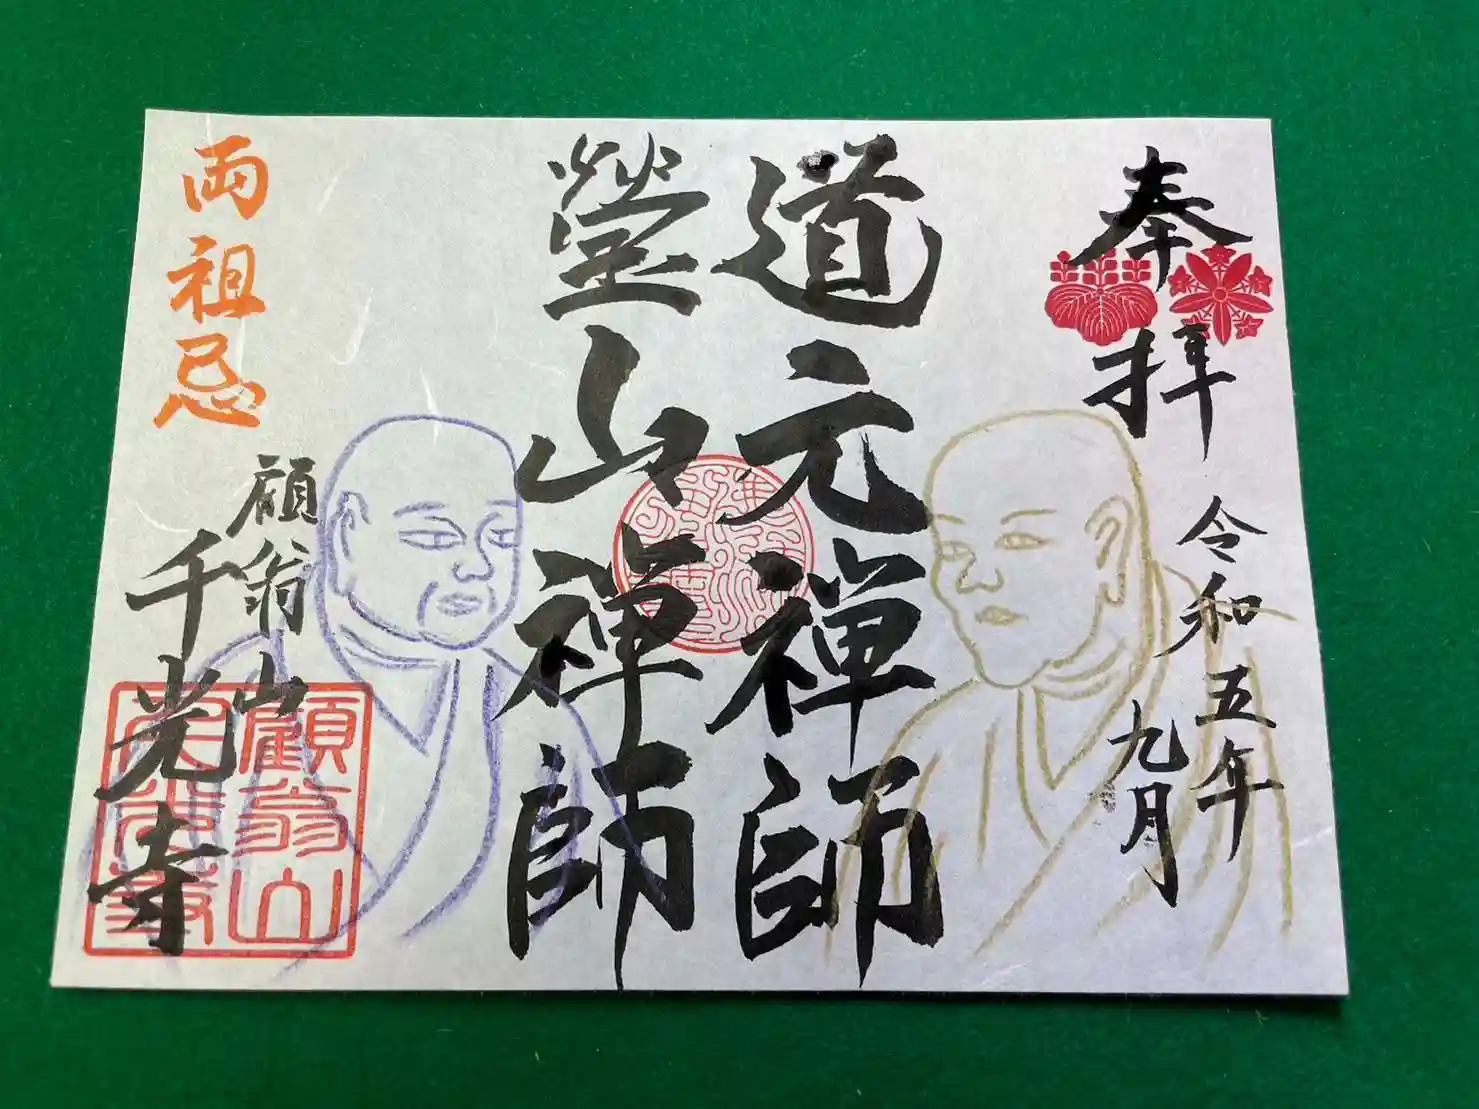 奉拝
令和五年
九月
道元禅師
瑩山禅師
両祖忌
顧翁山
千光寺
顧翁山